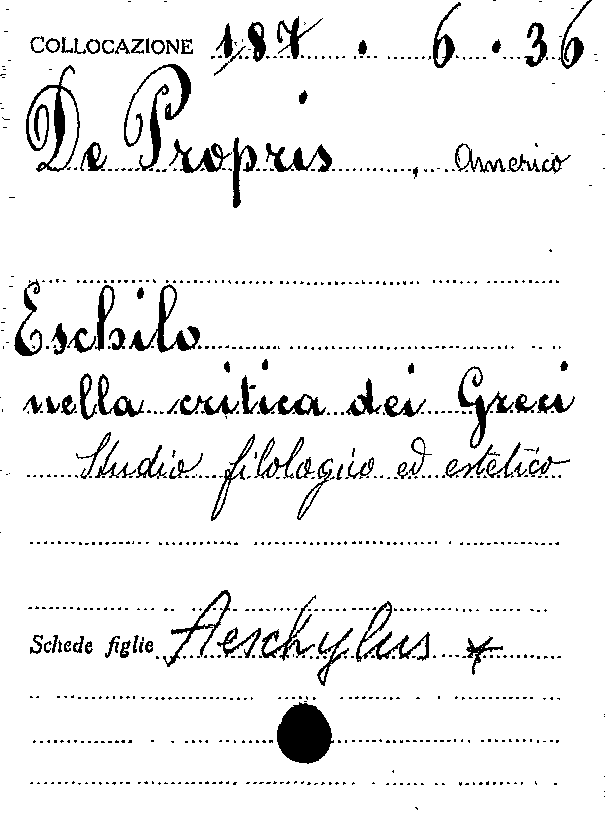 COLLOCAZIONE 187 . 6 . 36
De Propris , Americo
Eschilo
nella critica dei Greci
Studio filologico ed estetico
Schede figlie Aeschylus *